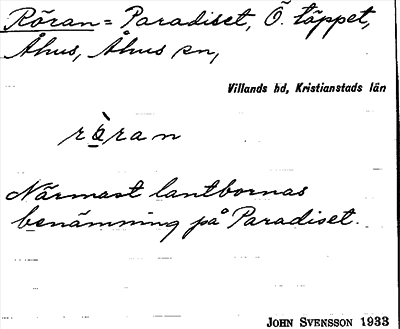 Röran = Paradiset, Ö. täppet,
Åhus, Åhus sn,
Villands hd, Kristianstads län
rò̱ran
Närmast lantbornas
benämning på Paradiset.
JOHN SVENSSON 1933